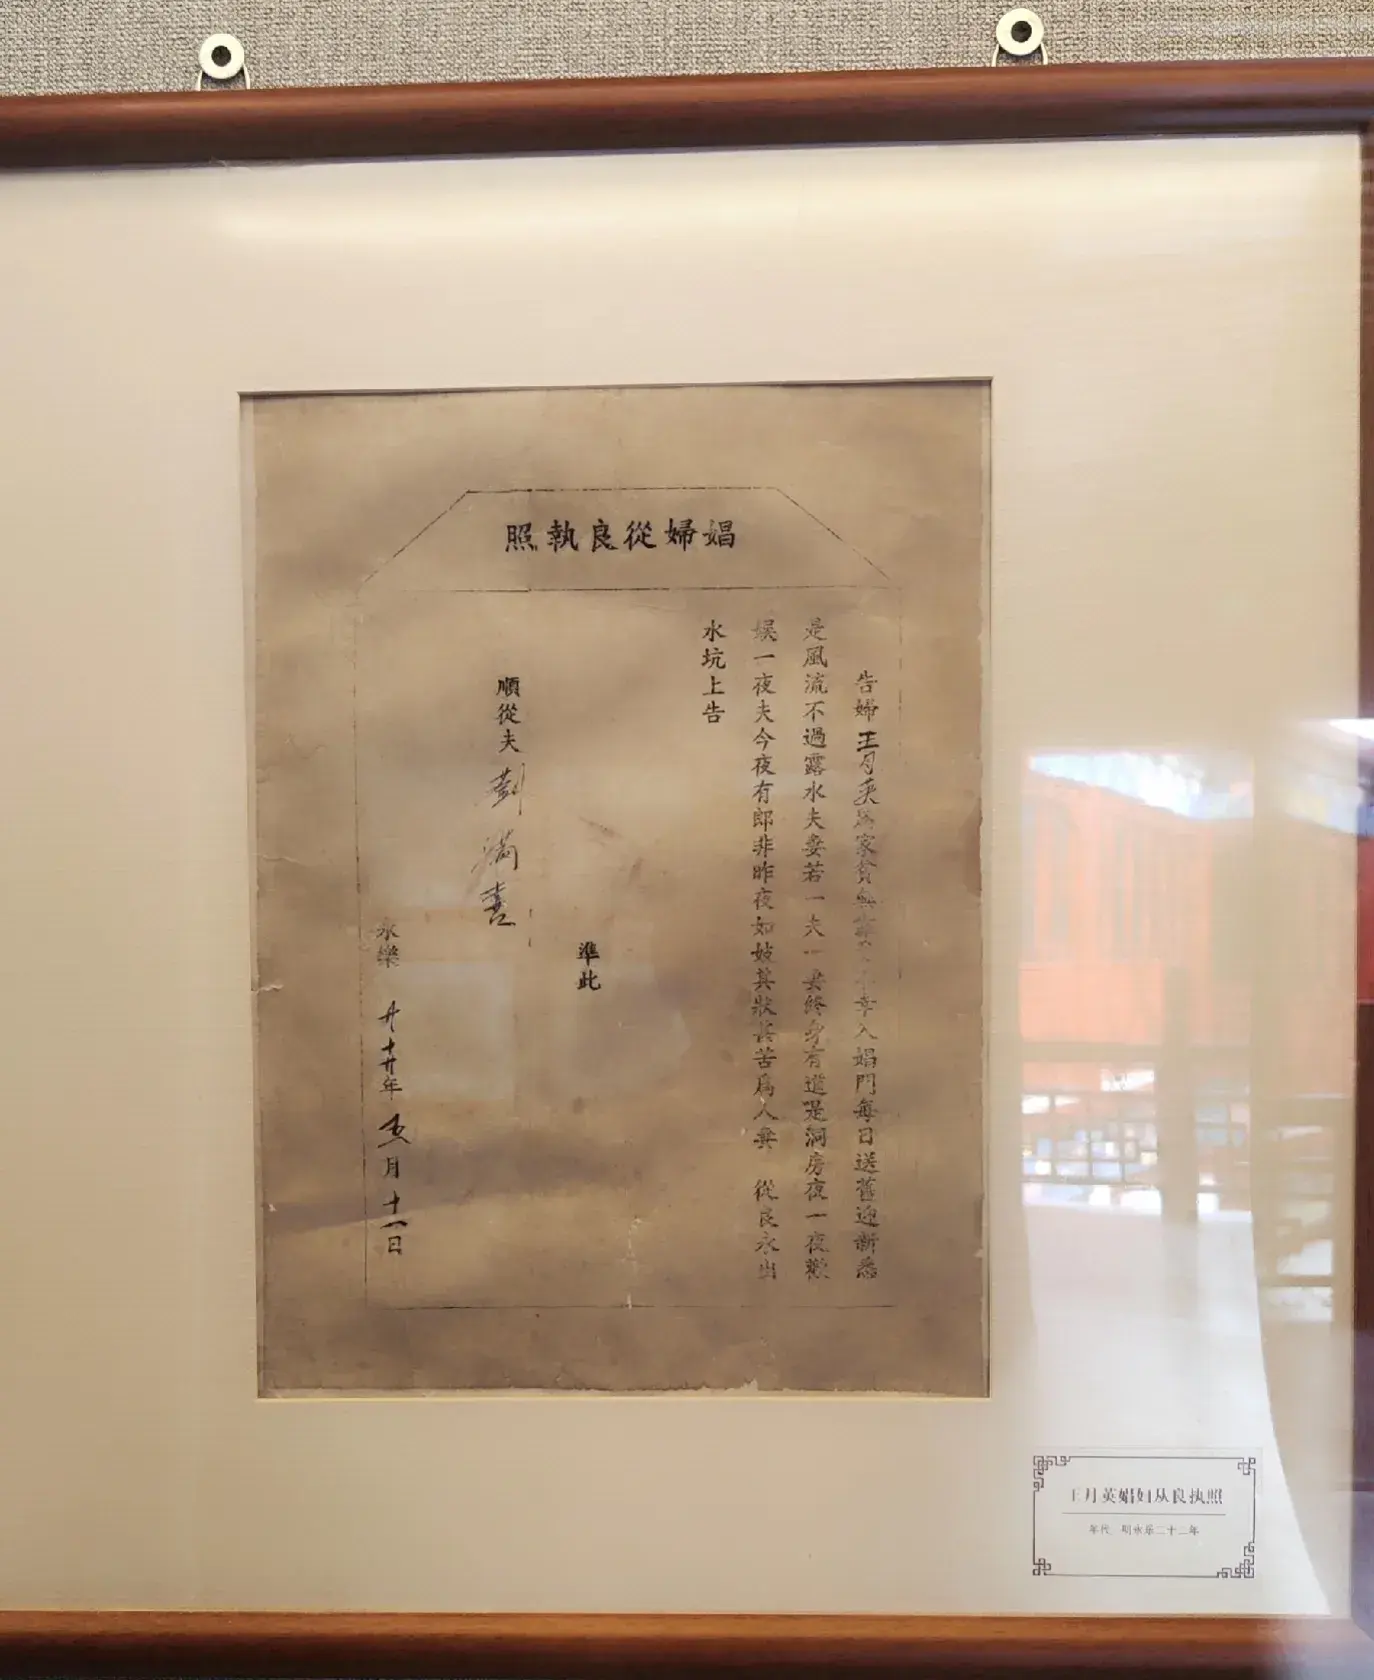 娼婦從良執照
告婦王月英為家貧無幸入娼門每日送舊迎新悉
是風流不過露水夫妻若一夫一妻終身有進是洞房夜一夜歡
娛一夜夫今夜有郎非昨夜如妓其狀甚苦爲人妻 從良永出
水坑上告
準此
順從夫 劉滿喜
永樂 廿年 五月十一日
王月英娼妇从良执照
年代 明永乐二十二年